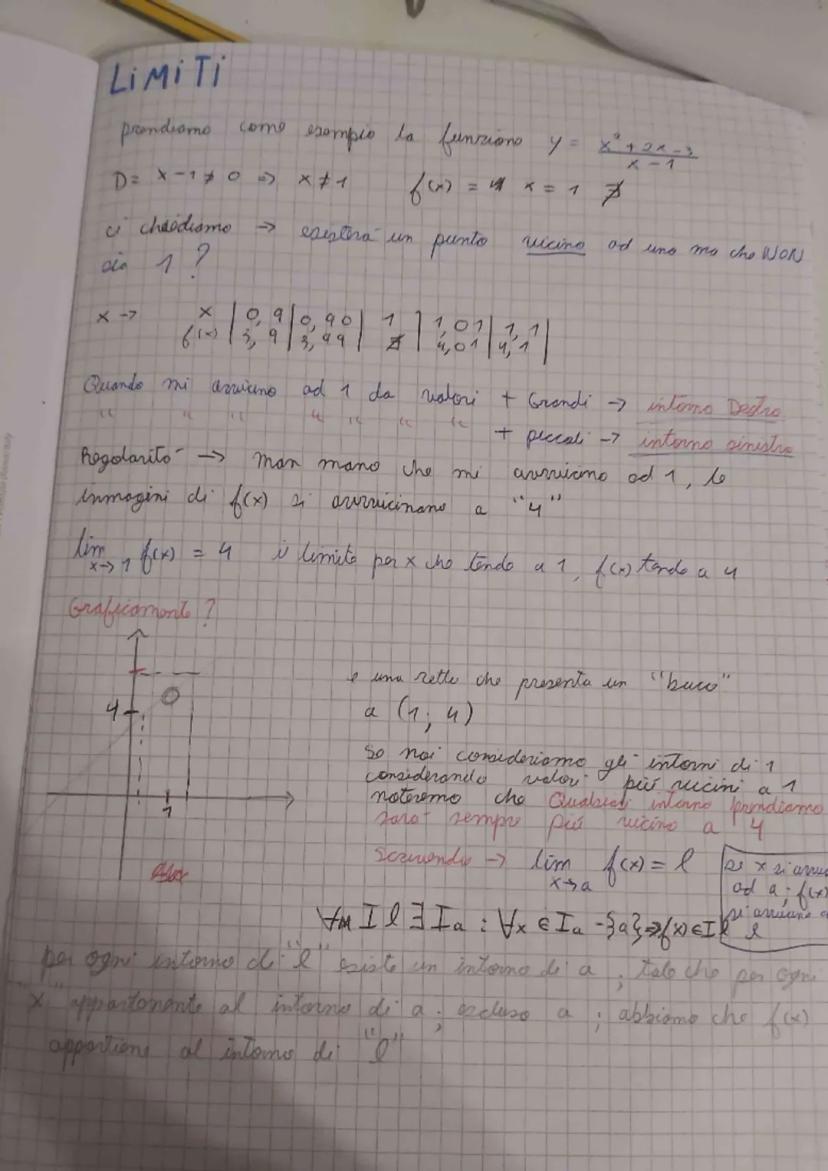 LiMiTi
prendiamo come esempio la funzione y = x² + 2x - 3 / x - 1
D = x - 1 ≠ 0 => x ≠ 1 f(x) = x = 1 ∄
ci chiediamo → esisterà un punto vicino ad uno ma che NON
sia 1 ?
x → x | 0,9 | 0,90 | 1 | 1,01 | 1,1 |
f(x) | 3,9 | 3,99 | ∄ | 4,01 | 4,1 |
Quando mi avvicino ad 1 da valori + Grandi → intorno Destro
" " " " " " " + piccoli → intorno sinistro
Regolarità → man mano che mi avvicino ad 1, le
immagini di f(x) si avvicinano a "4"
lim x→1 f(x) = 4 il limite per x che tende a 1, f(x) tende a 4
Graficamente ?
è una retta che presenta un "buco"
a (1; 4)
4
1
Se noi consideriamo gli intorni di 1
considerando valori più vicini a 1
noteremo che Qualsiasi intorno prendiamo
sarà sempre più vicino a 4
scrivendo → lim x→a f(x) = l
se x si avvi
ad a; f(x)
si avvicina a
l
∀ I l ∃ Ia : ∀x ∈ Ia - {a} => f(x) ∈ I l
per ogni intorno di "l" esiste un intorno di a ; tale che per ogni
"x" appartenente al intorno di a ; escluso a ; abbiamo che f(x)
appartiene al intorno di "l"